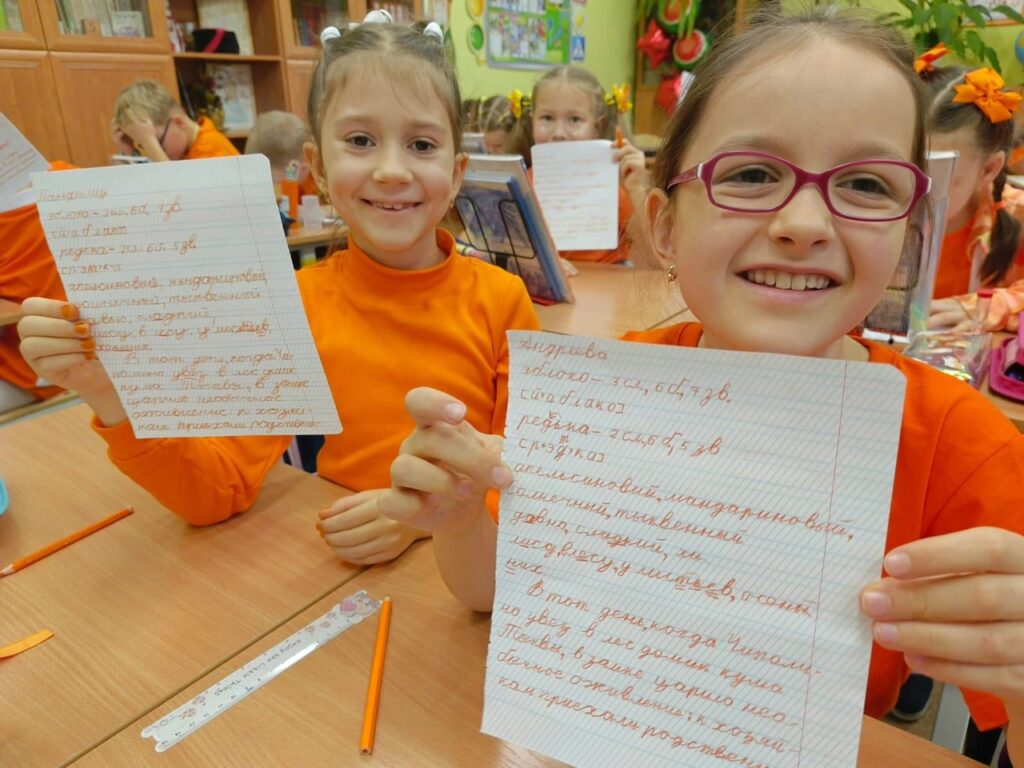 яблоко - 2сл, 6б, 7 зв.
[й'аблако]
редька - 2сл. 6б. 5 зв
апельсиновый, мандариновый
солнечный, тыквенный
сладкий,
в лесу, у листьев,
В тот день, когда Чи-
полино увёз в лес домик
кума Тыквы, в замке
царило необычное
оживление: к хозяй-
кам приехали родствен-
Андреева
яблоко - 3сл, 6б, 7 зв.
[й'аблако]
редька - 2сл, 6б, 5 зв
[р'эт'ка]
апельсиновый, мандариновый,
солнечный, тыквенный
давно, сладкий, ли
в лесу, у листьев, осенн
них
В тот день, когда Чиполи-
но увёз в лес домик кума
Тыквы, в замке царило нео-
бычное оживление: к хозяй-
кам приехали родственн